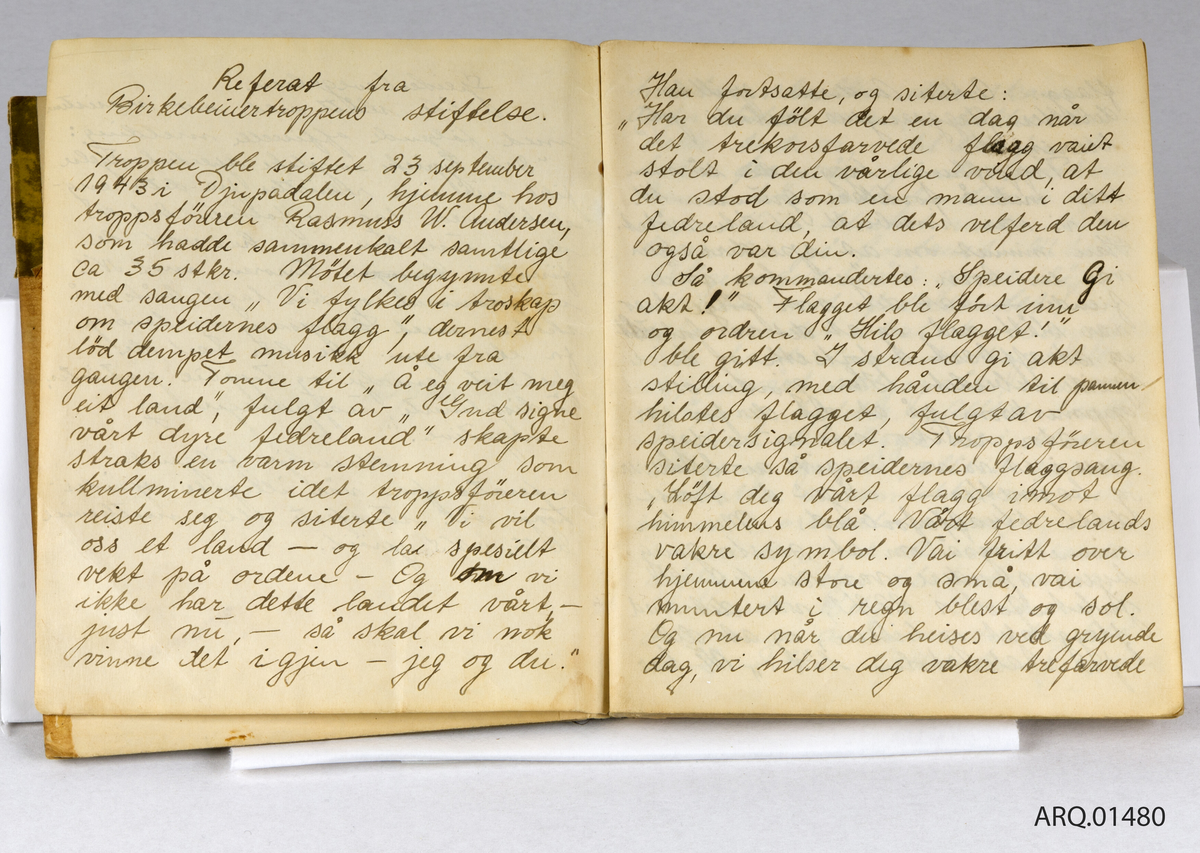 Referat fra
Birkebeinertroppens stiftelse.
Troppen ble stiftet 23 september
1943 i Djupadalen, hjemme hos
troppsföreren Rasmuss W. Andersen,
som hadde sammenkalt samtlige
ca 35 stkr. Møtet begynnte
med sangen „Vi fylkes i troskap
om speidernes flagg", dernest
löd dempet musikk ute fra
gangen. Tonne til „Å eg veit meg
eit land", fulgt av „Gud signe
vårt dyre fedreland" skapte
straks en varm stemning som
kullminerte idet troppsföreren
reiste seg og siterte „Vi vil
oss et land — og la spesielt
vekt på ordene – Og om vi
ikke har dette landet vårt, –
just nu, – så skal vi nok
vinne det igjen – jeg og du."
Han fortsatte, og siterte:
„Har du fölt det en dag når
det trekorsfarvede flagg vaiet
stolt i den vårlige vind, at
du stod som en mann i ditt
fedreland, at dets velferd den
også var din.
Så kommandertes: „Speidere Gi
akt!" Flagget ble fört inn
og ordren „Hils flagget!"
ble gitt. I stram gi akt
stilling, med hånden til pannen
hilstes flagget, fulgt av
speidersignalet. Troppsföreren
siterte så speidernes flaggsang.
„Löft deg vårt flagg imot
himmelens blå. Vårt fedrelands
vakre symbol. Vai fritt over
hjemmene store og små, vai
muntert i regn blest og sol.
Og nu når du heises ved gryende
dag, vi hilser deg vakre trefarvede
ARQ.01480